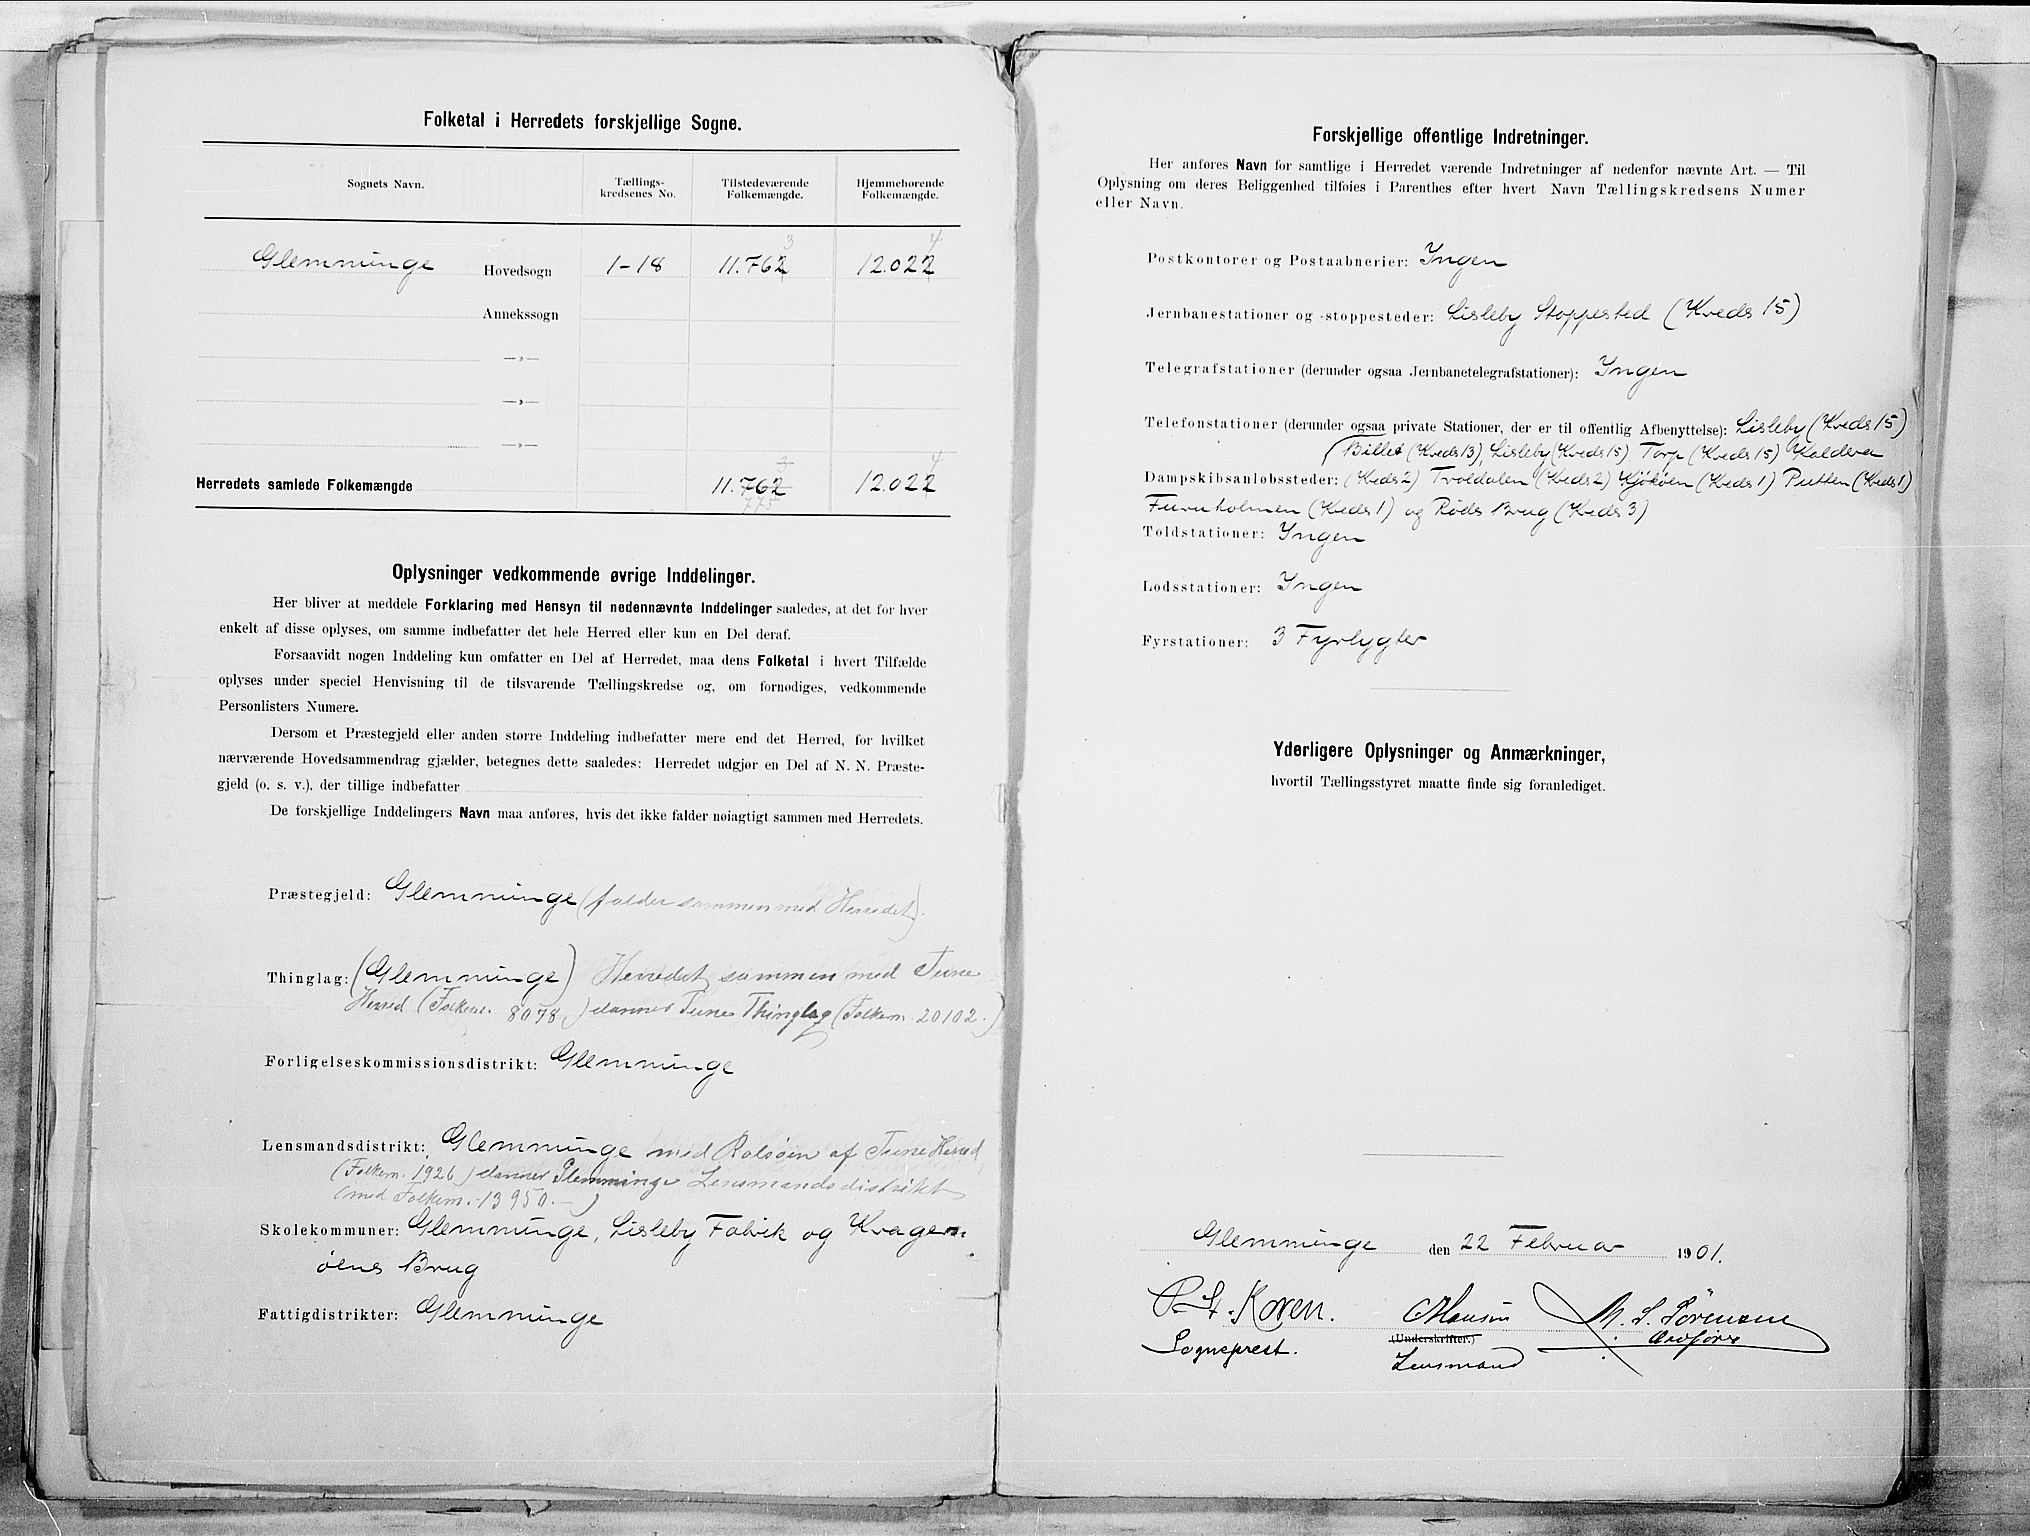 Folketal i Herredets forskjellige Sogne.
Sognets Navn.
Tællings-
kredsenes No.
Tilstedeværende
Folkemængde.
Hjemmehørende
Folkemængde.
3 4
Glemminge Hovedsogn 1-18 11.762 12.022
Annekssogn
—„—
—„—
—„—
3 4
Herredets samlede Folkemængde 11.762 12.022
775
Oplysninger vedkommende øvrige Inddelinger.
Her bliver at meddele Forklaring med Hensyn til nedennævnte Inddelinger saaledes, at det for hver
enkelt af disse oplyses, om samme indbefatter det hele Herred eller kun en Del deraf.
Forsaavidt nogen Inddeling kun omfatter en Del af Herredet, maa dens Folketal i hvert Tilfælde
oplyses under speciel Henvisning til de tilsvarende Tællingskredse og, om fornødiges, vedkommende
Personlisters Numere.
Dersom et Præstegjeld eller anden større Inddeling indbefatter mere end det Herred, for hvilket
nærværende Hovedsammendrag gjælder, betegnes dette saaledes: Herredet udgjør en Del af N. N. Præste-
gjeld (o. s. v.), der tillige indbefatter
De forskjellige Inddelingers Navn maa anføres, hvis det ikke falder nøiagtigt sammen med Herredets.
Præstegjeld: Glemminge (falder sammen med Herredet).
Thinglag: (Glemminge) Herredet sammen med Tune
Herred (Folkem. 8078) danner Tune Thinglag (Folkem. 20102.)
Forligelseskommissionsdistrikt: Glemminge
Lensmandsdistrikt: Glemminge med Rolsøen af Tune Herred
(Folkem. 1926) danner Glemminge Lensmandsdistrikt
(med Folkem. 13950.-)
Skolekommuner: Glemminge, Lisleby Fabrik og Kragen-
øens Brug
Fattigdistrikter: Glemminge
Forskjellige offentlige Indretninger.
Her anføres Navn for samtlige i Herredet værende Indretninger af nedenfor nævnte Art. — Til
Oplysning om deres Beliggenhed tilføies i Parenthes efter hvert Navn Tællingskredsens Numer
eller Navn.
Postkontorer og Postaabnerier: Ingen
Jernbanestationer og -stoppesteder: Lisleby Stoppested (Kreds 15)
Telegrafstationer (derunder ogsaa Jernbanetelegrafstationer): Ingen
Telefonstationer (derunder ogsaa private Stationer, der er til offentlig Afbenyttelse): Lisleby (Kreds 15)
(Billet (Kreds 13), Lisleby (Kreds 15) Torp (Kreds 15) Kaldera
Dampskibsanløbssteder: (Kreds 2) Troldalen (Kreds 2) Kjøkøen (Kreds 1) Putten (Kreds 1)
Furuholmen (Kreds 1) og Røds Brug (Kreds 3)
Toldstationer: Ingen
Lodsstationer: Ingen
Fyrstationer: 3 Fyrlygter
Yderligere Oplysninger og Anmærkninger,
hvortil Tællingsstyret maatte finde sig foranlediget.
Glemminge den 22 Februar 1901.
P. St. Koren. Hansen M. S. Sörensen
(Underskrifter.) Ordfører
Sogneprest. Lensmand